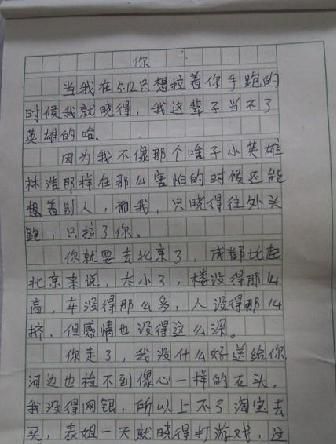 你
当我在5.12只想拉着你手跑的
时候我就晓得，我这辈子当不了
英雄的哈.
因为我不像那个啥子小英雄
林浩那样在那么害怕的时候还能
想着别人，而我，只晓得往外头
跑，只拉了你。
你就要去北京了，成都比起
北京来说，太小了，楼没得那么
高，车没得那么多，人没得那么
挤，但感情也没得这么深。
你走了，我没什么好送给你
河边也捡不到像心一样的石头。
我没得网银，所以上不了淘宝去
买，表姐一天就晓得打游戏，这